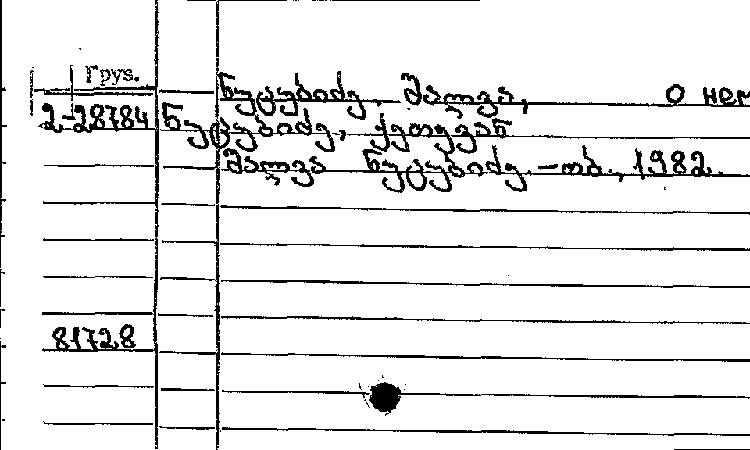 Груз.
ნუცუბიძე, შალვა, о нем
2-28784 ნუცუბიძე, ქეთევან
შალვა ნუცუბიძე. – თბ., 1982.
81728